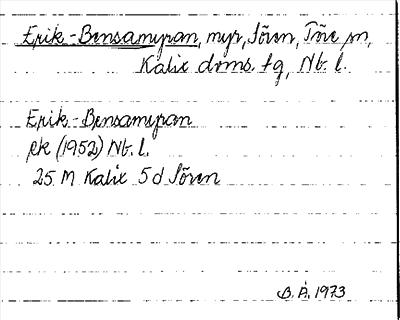 Erik-Bensamyran, myr, Sören, Töre sn,
Kalix dvms tg, Nb. l.
Erik-Bensamyran
ek (1952) Nb. l.
25 M Kalix 5 d Sören
B. Å. 1973